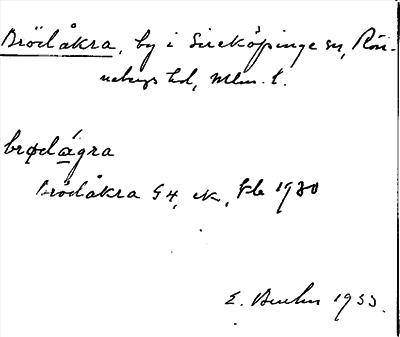 Brödåkra, by i Sireköpinge sn, Rön-
nebergs hd, Mlm. l.
brødágra
Brödåkra G4, ek, Fbr 1930
E. 1933.